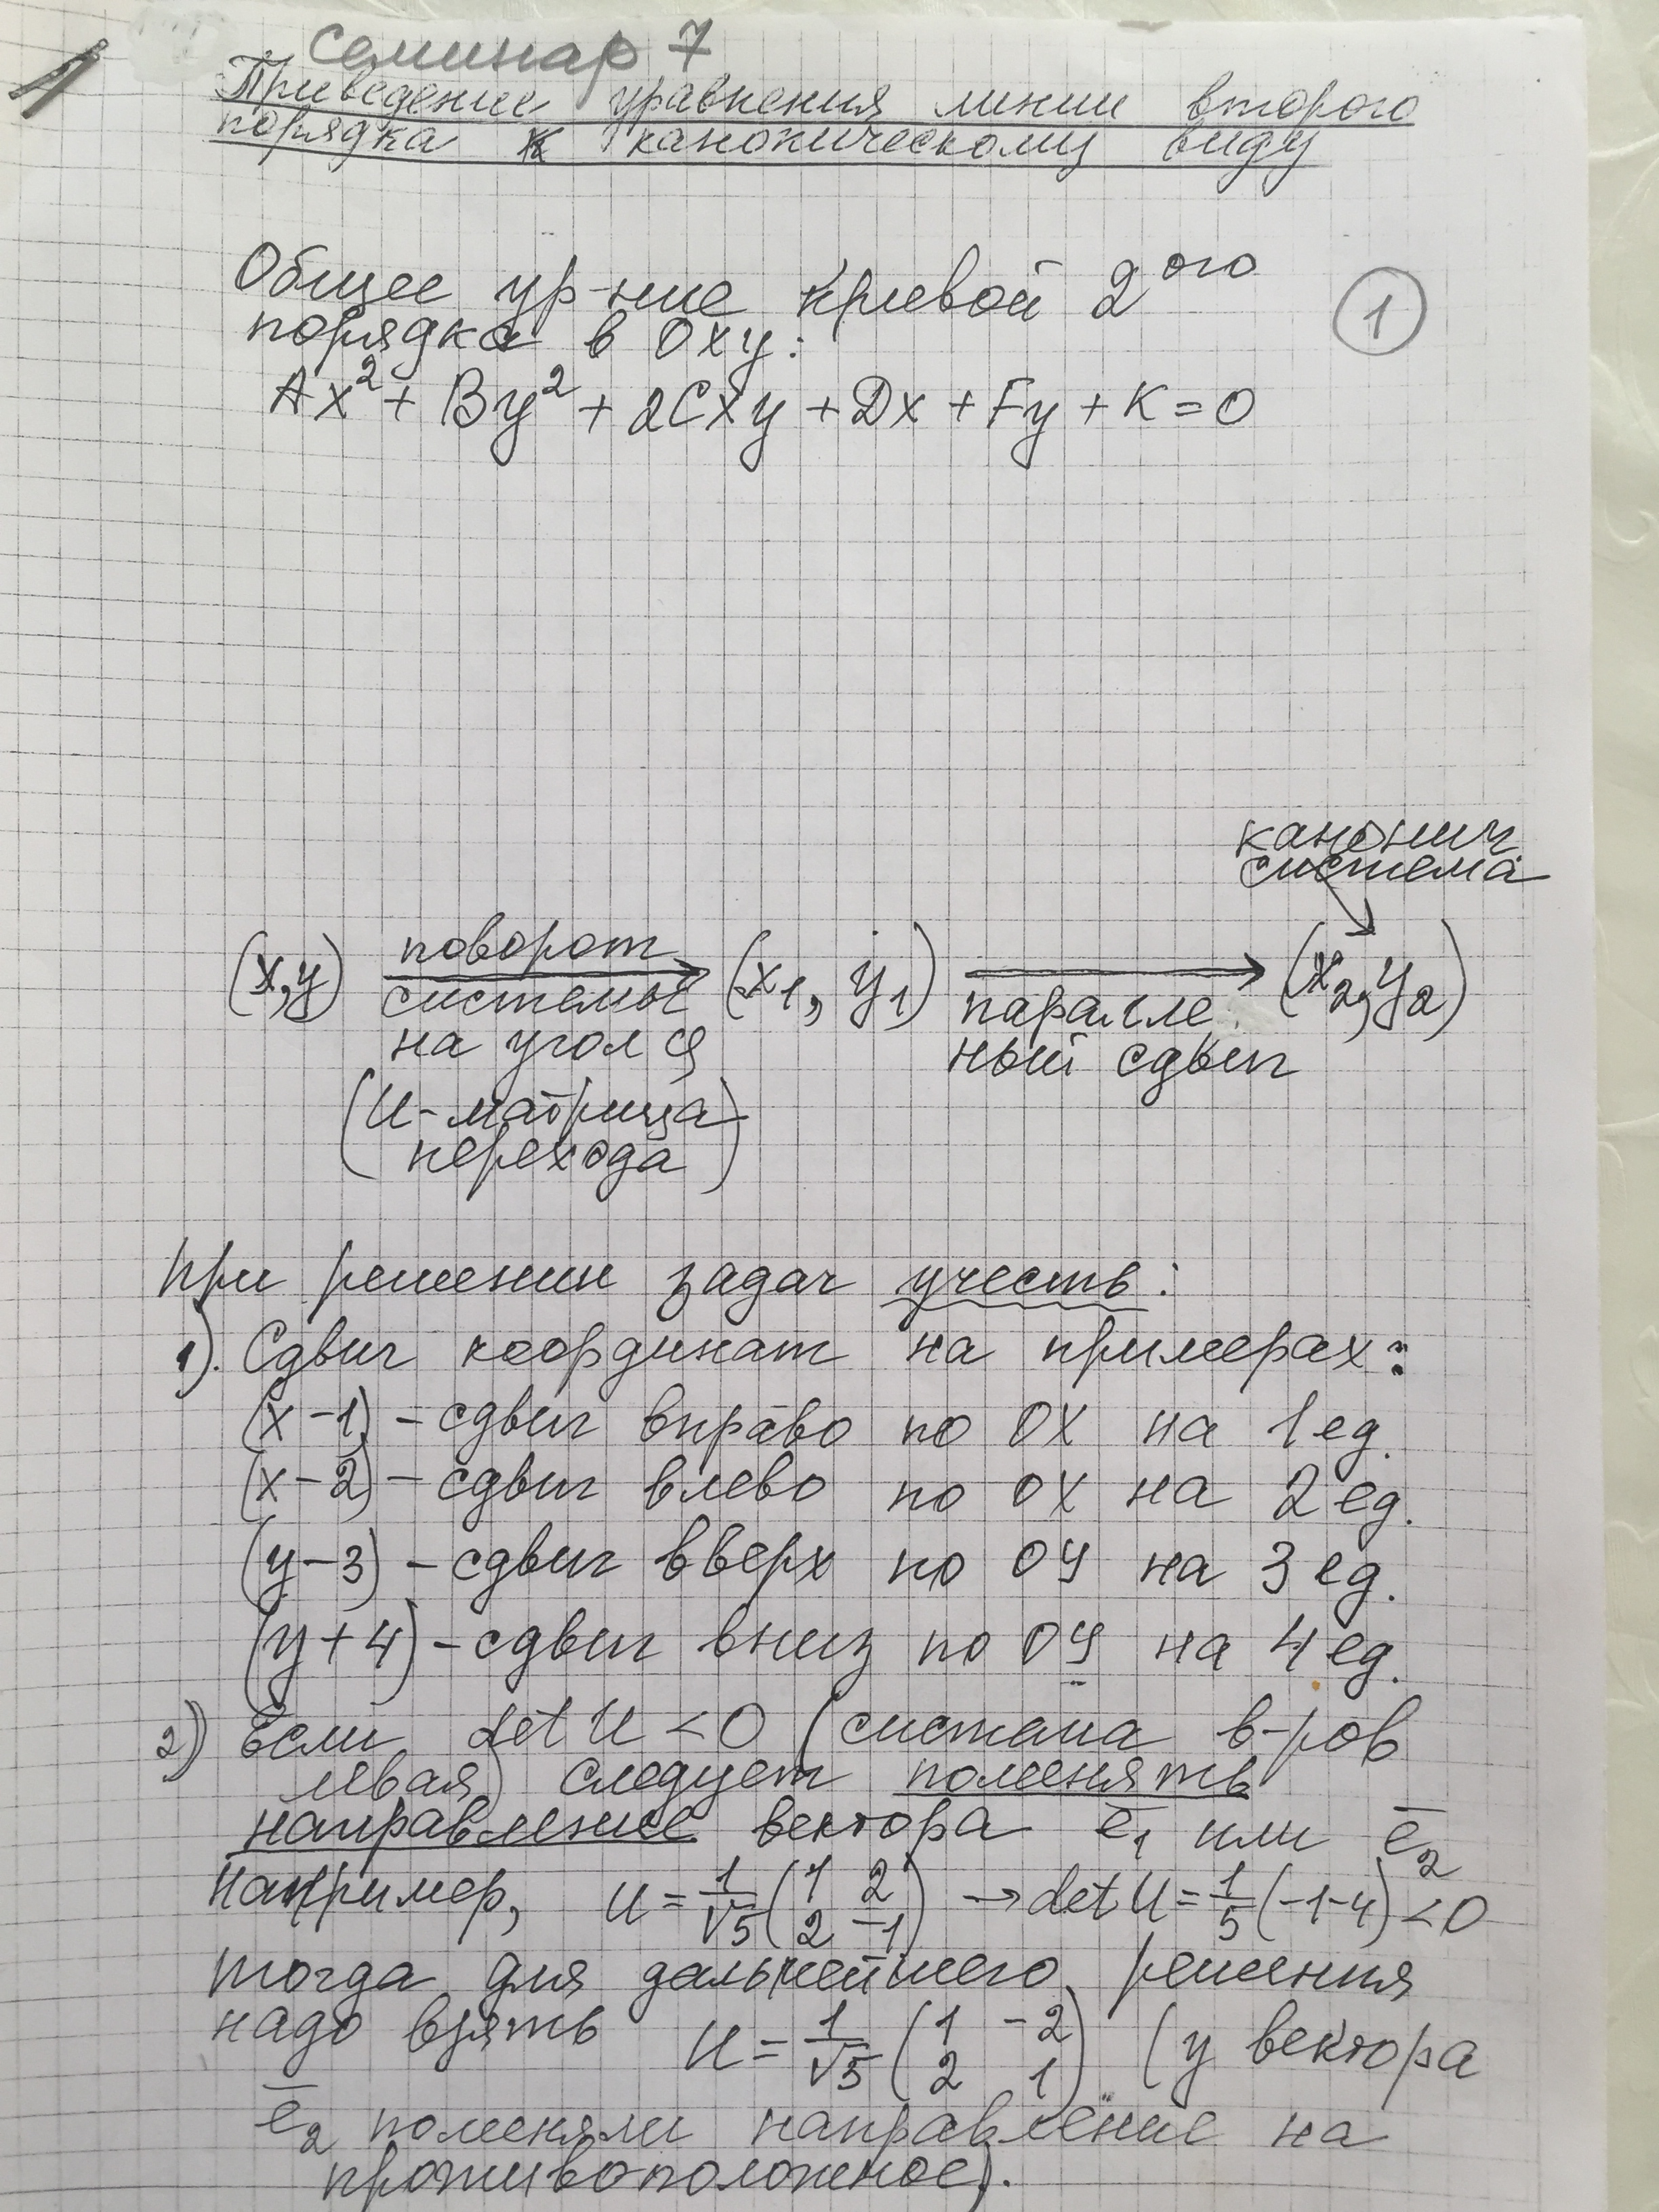 Семинар 7
Приведение уравнения линии второго
порядка к каноническому виду
Общее ур-ние кривой 2ого
порядка в Oxy:
1
Ax² + By² + 2Cxy + Dx + Fy + K = 0
канонич.
система
(x,y) поворот системы на угол φ (x₁, y₁) паралле ный сдвиг (x₂, y₂)
(U-матрица
перехода)
При решении задач учесть:
1). Сдвиг координат на примерах:
(x-1) - сдвиг вправо по OX на 1 ед.
(x-2) - сдвиг влево по OX на 2 ед.
(y-3) - сдвиг вверх по OY на 3 ед.
(y+4) - сдвиг вниз по OY на 4 ед.
2) Если det U < 0 (система в-ров
левая) следует поменять
направление вектора e̅₁ или e̅₂
Например, U = 1/√5 (1 2; 2 -1) → det U = 1/5 (-1-4) < 0
тогда для дальнейшего решения
надо взять U = 1/√5 (1 -2; 2 1) (у вектора
e̅₂ поменяли направление на
противоположное).